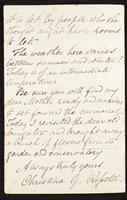 it is let by people who she
thought might have rooms
to let.
The weather here varies
between summer and winter!
Today is of an intermediate
temperature.
Be sure you will find my
dear Mother ready and anxious
to set forward the memorial.
Today I revisited the dear old
bungalow and brought away
a bunch of flowers from its
garden and conservatory.
Always truly yours
Christina G. Rossetti.